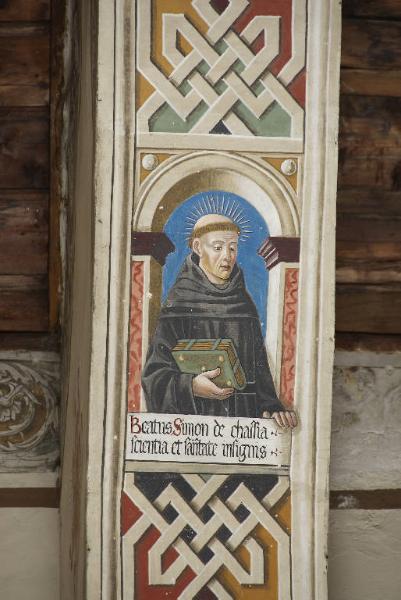 Beatus Simon de chassia
scientia et sãtitate insignis